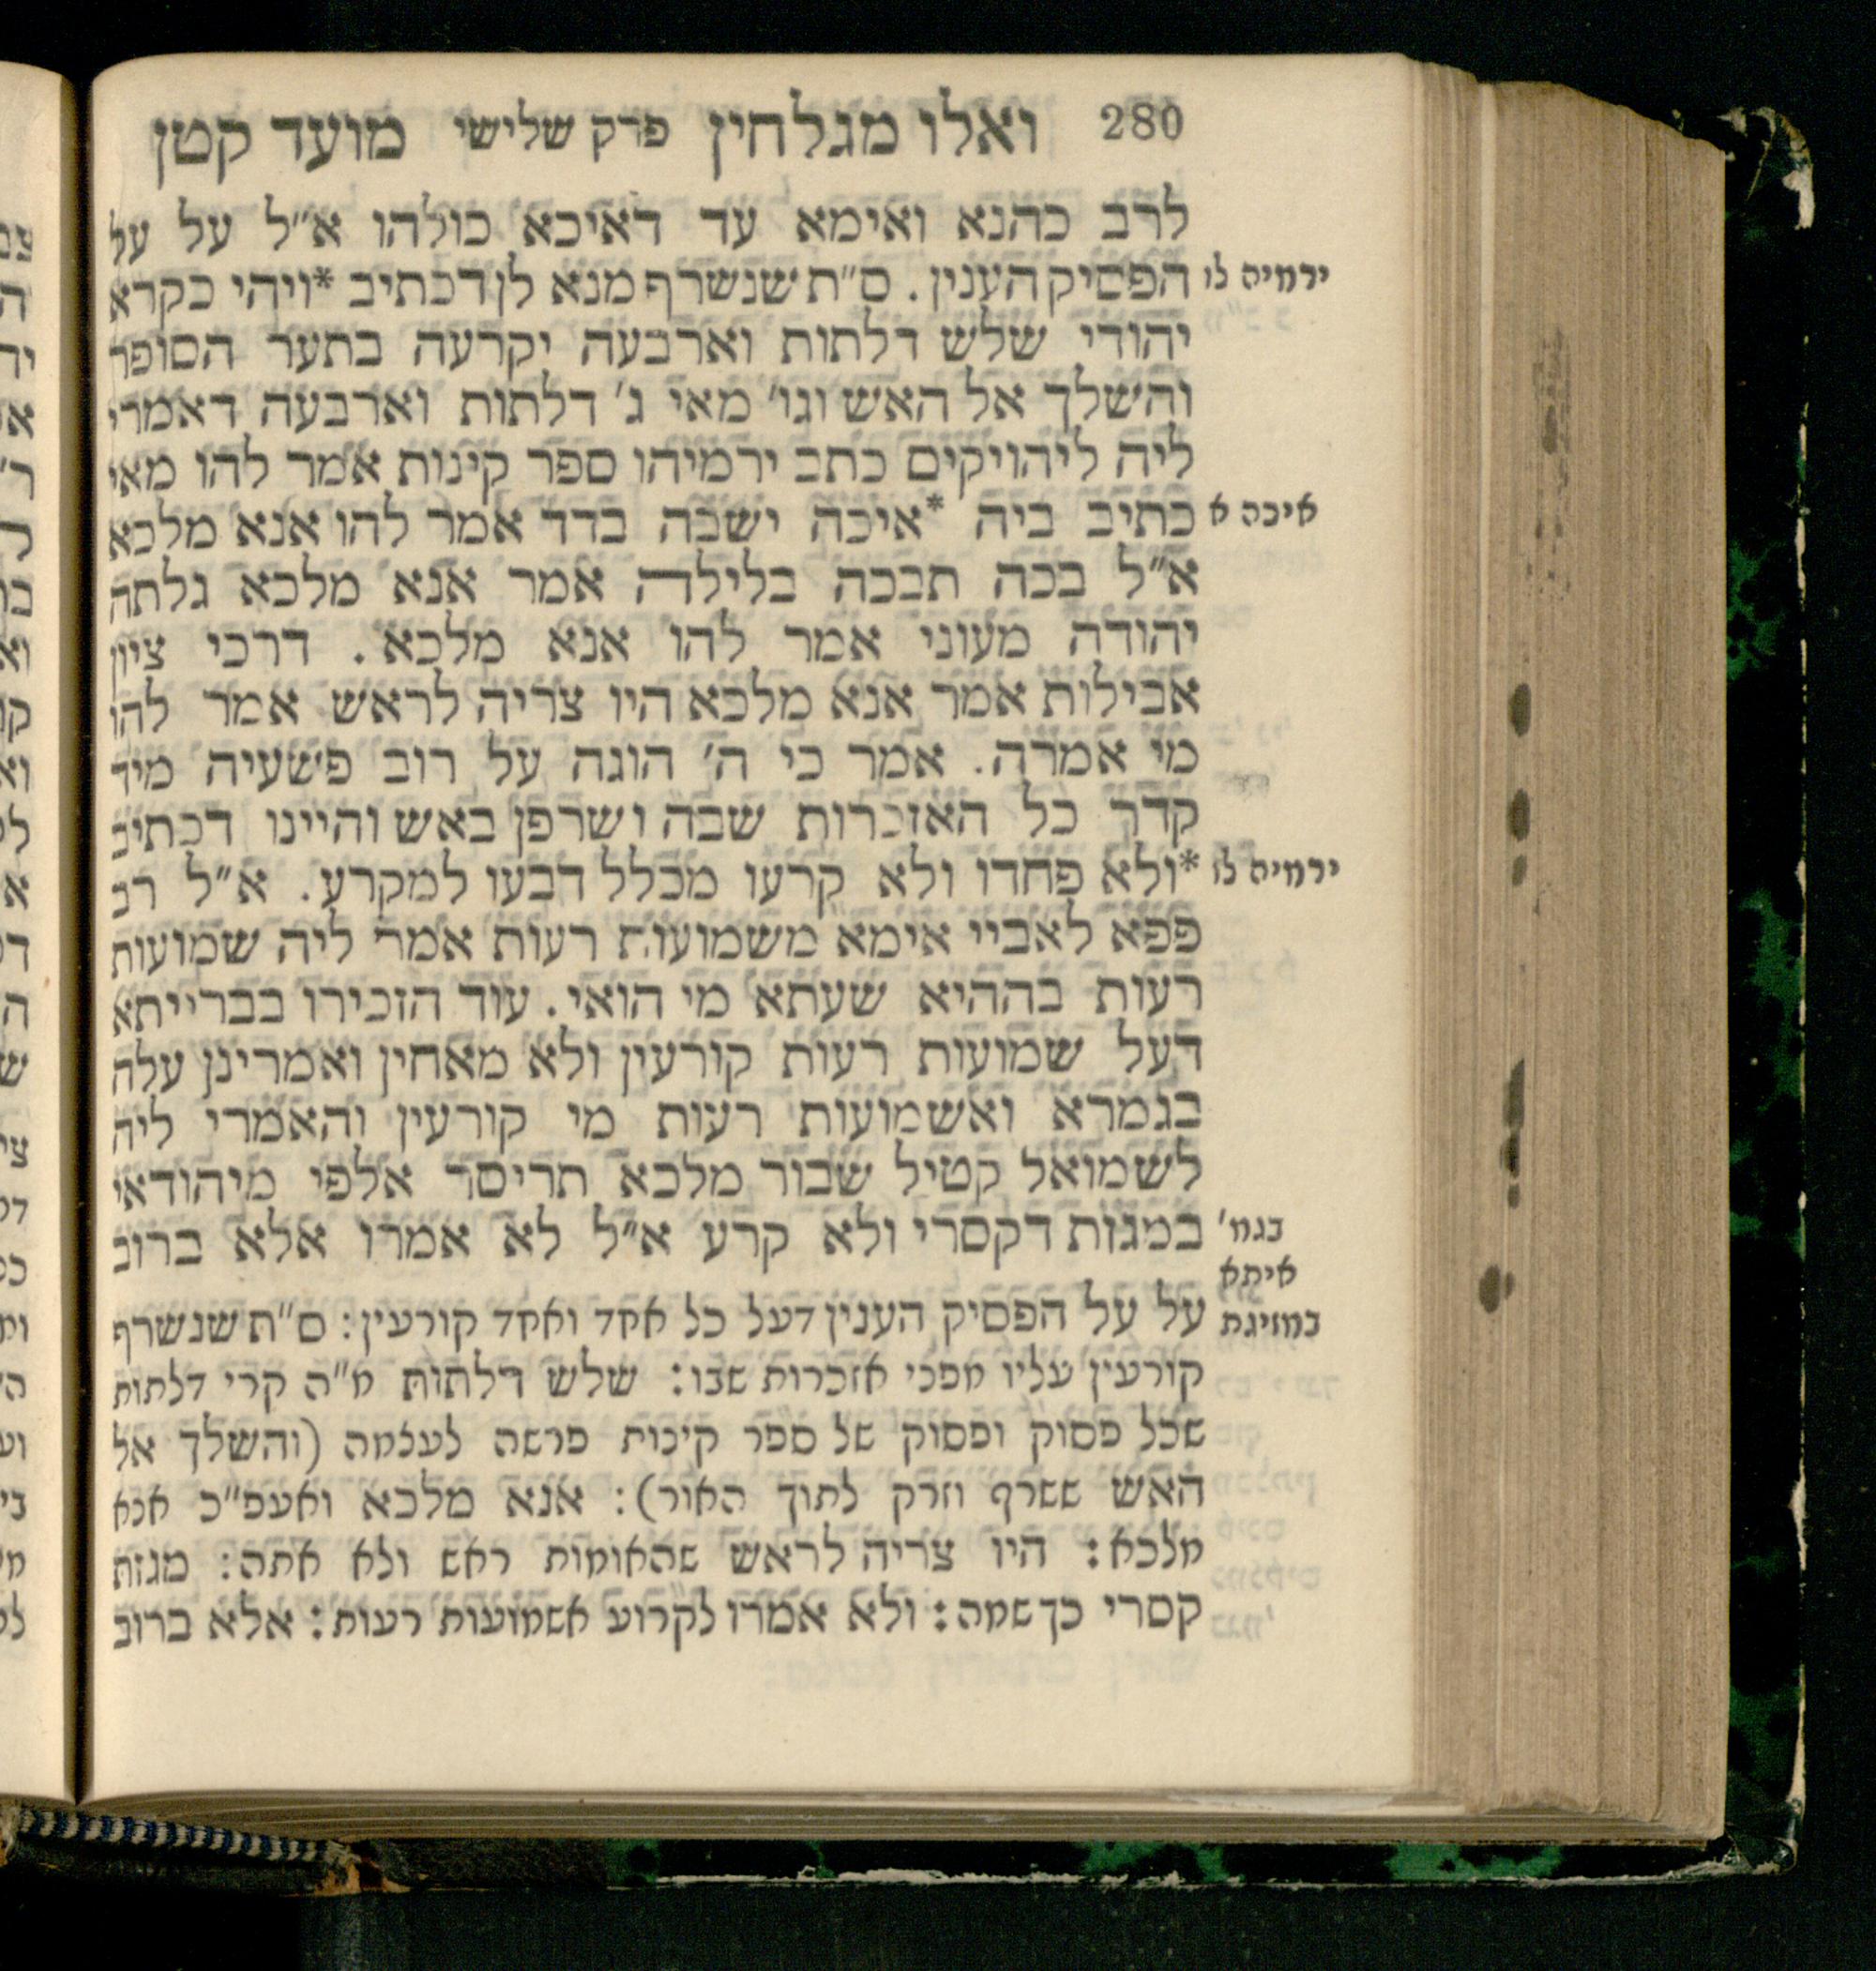 280 ואלו מגלחין פרק שלישי מועד קטן
לרב כהנא ואימא עד דאיכא כולהו א״ל על על
ירמיה לו הפסיק הענין. ס״ת שנשרף מנא לן דכתיב *ויהי כקרא
יהודי שלש דלתות וארבעה יקרעה בתער הסופר
והשלך אל האש וגו׳ מאי ג׳ דלתות וארבעה דאמרי
ליה ליהויקים כתב ירמיהו ספר קינות אמר להו מאי
איכה א כתיב ביה *איכה ישבה בדד אמר להו אנא מלכא
א״ל בכה תבכה בלילה אמר אנא מלכא גלתה
יהודה מעוני אמר להו אנא מלכא. דרכי ציון
אבילות אמר אנא מלכא היו צריה לראש אמר להו
מי אמרה. אמר כי ה׳ הוגה על רוב פשעיה מיד
קדר כל האזכרות שבה ושרפן באש והיינו דכתיב
ירמיה לו *ולא פחדו ולא קרעו מכלל דבעו למקרע. א״ל רב
פפא לאביי אימא משמועות רעות אמר ליה שמועות
רעות בההיא שעתא מי הואי. עוד הזכירו בברייתא
דעל שמועות רעות קורעין ולא מאחין ואמרינן עלה
בגמרא ואשמועות רעות מי קורעין והאמרי ליה
לשמואל קטיל שבור מלכא תריסר אלפי מיהודאי
בגמ׳ במגזת דקסרי ולא קרע א״ל לא אמרו אלא ברוב
איתא
במזיגת על על הפסיק הענין דעל כל אחד ואחד קורעין: ס״ת שנשרף
קורעין עליו מפני אזכרות שבו: שלש דלתות מ״ה קרי דלתות
שכל פסוק ופסוק של ספר קינות פרשה לעצמה (והשלך אל
האש ששרף וזרק לתוך האור): אנא מלכא ואעפ״כ אנא
מלכא: היו צריה לראש שהאומות ראש ולא אתה: מגזת
קסרי כך שמה: ולא אמרו לקרוע אשמועות רעות: אלא ברוב